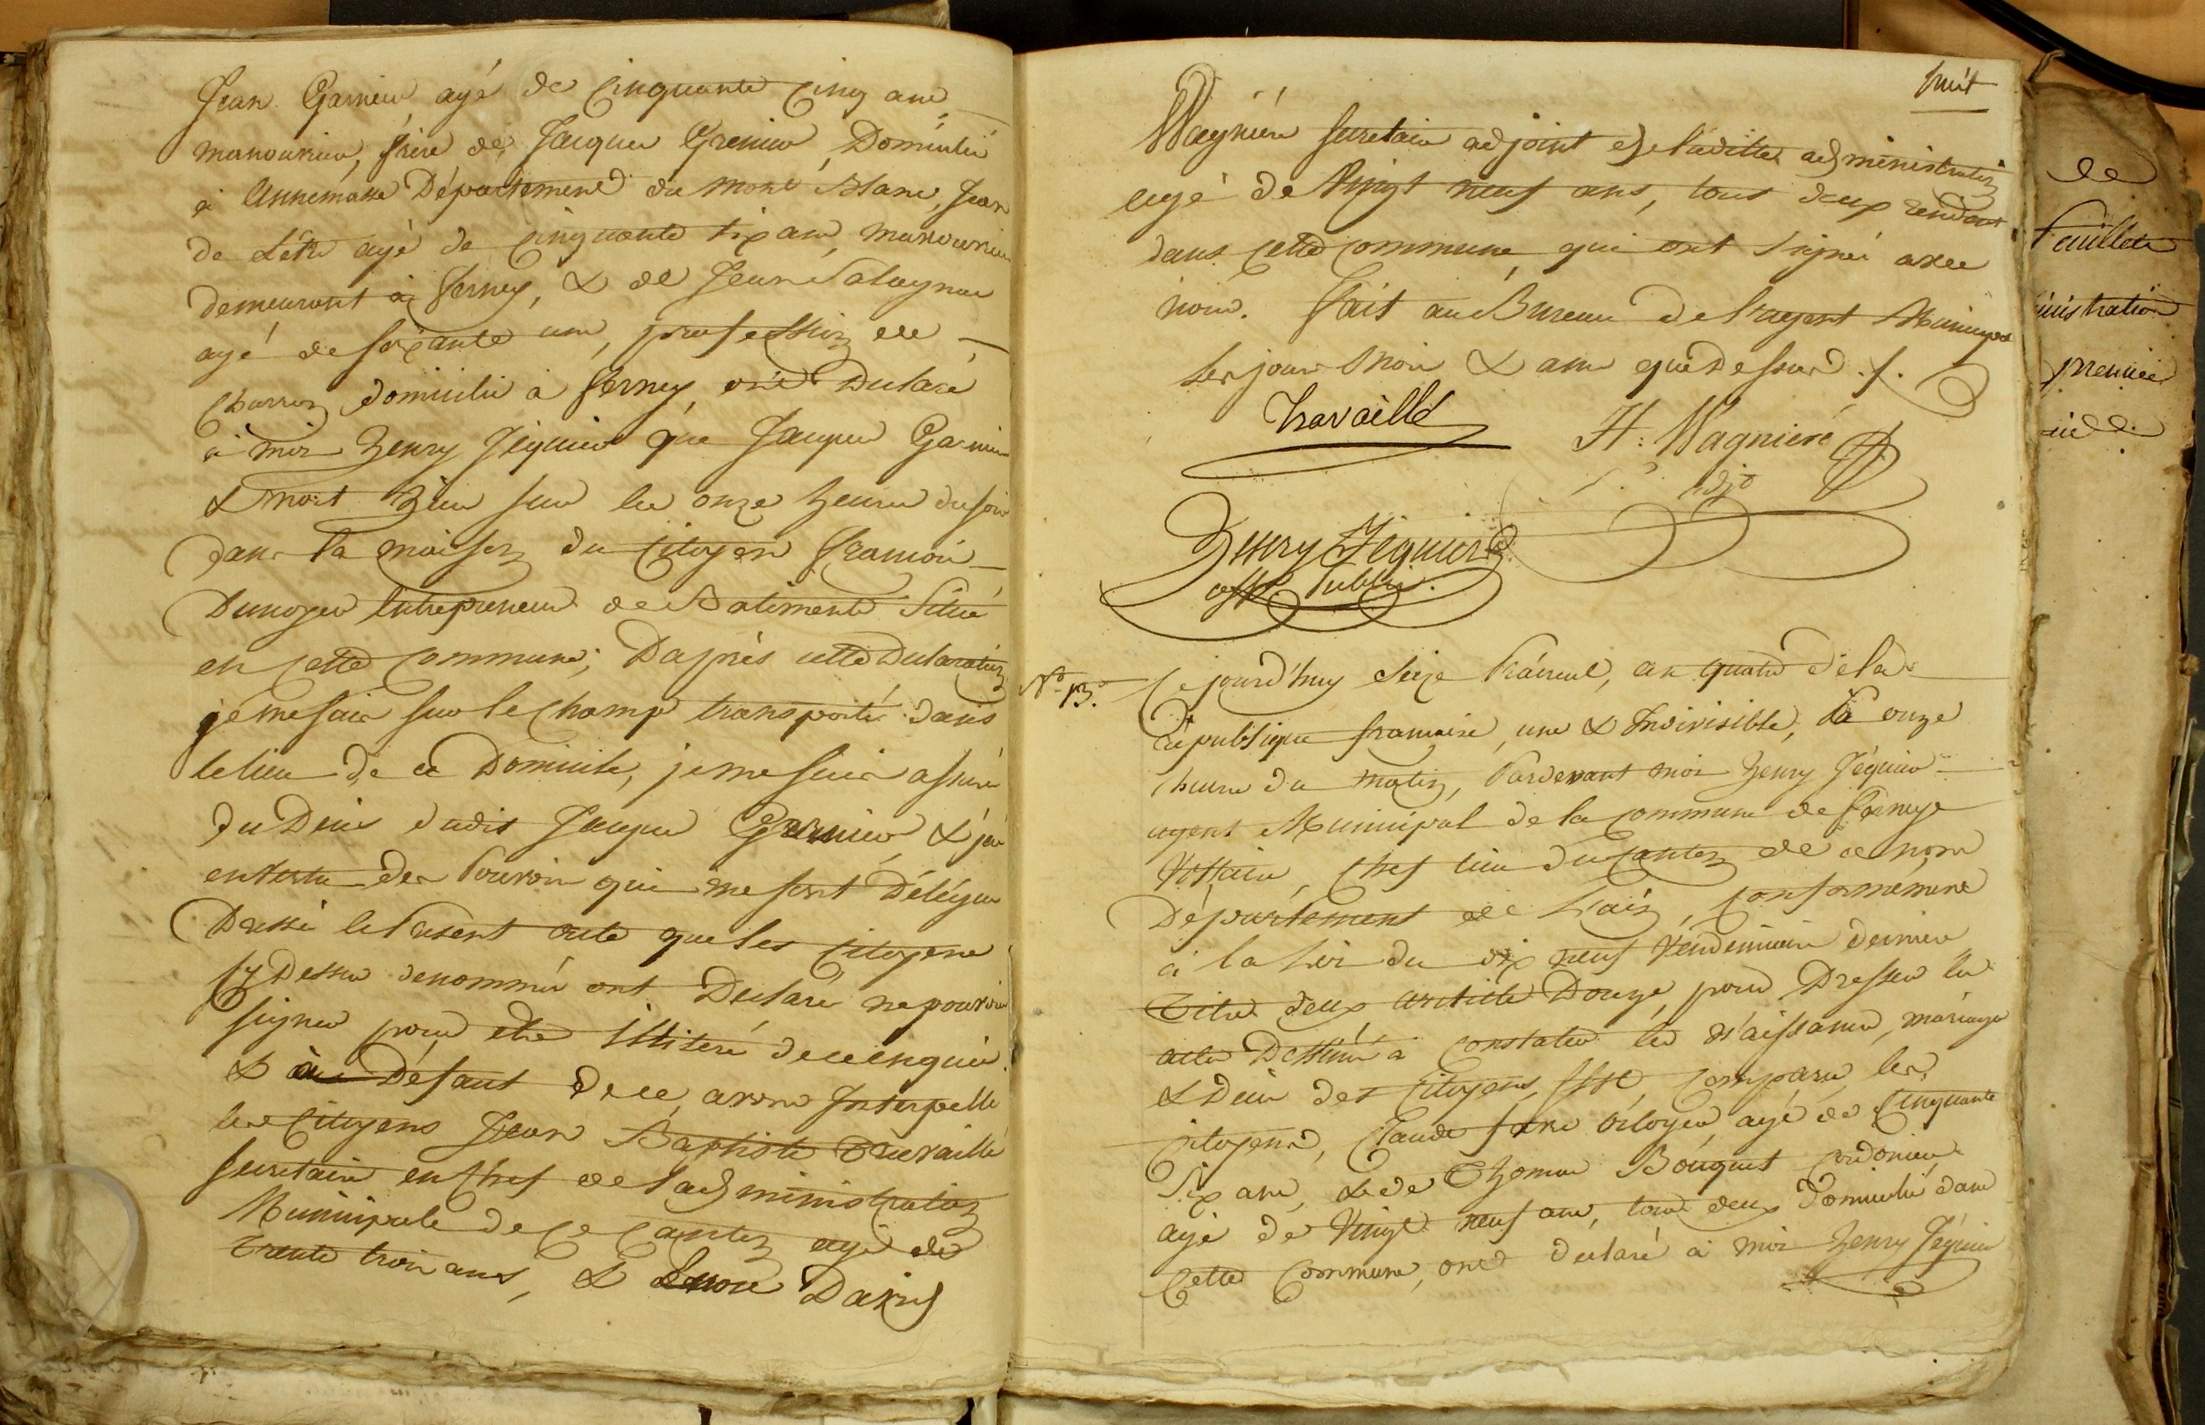 Jean Garnier agé de Cinquante Cinq ans
manouvrier, frère de Jacques Grenier, Domicilié
à Annemasse Département du Mont Blanc, Jean
de Létra agé de Cinquante six ans, manouvrier
demeurant à ferney, & de Jean
agé de soixante ans, profession de
Charron domicilié à ferney, ont Declaré
à moi henry Jéquier que Jacques Garnier
& mort hier sur les onze heures du soir
dans la maison du Citoyen francois
Dunoyer Entrepreneur de Batiments Situé
en Cette Commune; D'après cette Declaration
je me suis sur le Champ transporté dans
le lieu de ce Domicile, je me suis assuré
du Décès dudit Jacques Grenier, & j'ai
en vertu des Pouvoirs qui me sont Délégué
Dressé le Présent acte que les Citoyens
Cy Dessus denommés ont Declaré ne pouvoir
signer pour etre illitéré de ce enquis.
& à Défaut de ce, avons Interpellé
les Citoyens Jean Baptiste Travaillé
secretaire en Chef de l'administration
Municipale de Ce Canton agé de
trente trois ans, & David
huit
Wagnière secretaire adjoint de laditte administration
agé de Vingt neuf ans, tous deux residant
dans Cette Commune qui ont signé avec
nous. fait au Bureau de l'agent Municipal
les jour Mois & ans que Dessus ./.
Travaillé
H: Wagnière
adjt
Henry Jéquier
off. Public.
No. 13.
Ce jourd'huy seize Prairial, an quatre de la
République francaise, une & Indivisible, à onze
heures du matin, Pardevant moi henry Jéquier
agent Municipal de la Commune de Ferney
Voltaire, Chef lieu du Canton de ce nom
Département de L'ain, Conformément
à la Loi du dix neuf Vendemiaire dernier
Titre deux article Douze, pour Dresser les
actes Destinés à Constater les Naissances, mariages
& Décès des Citoyens, est Comparu les
Citoyens, Claude agé de Cinquante
Six ans, & de Thomas Bouquet Cordonier
agé de Vingt neuf ans, tous deux Domicilié dans
Cette Commune, ont declaré à moi henry Jéquier
de
Feuillets
inistration
premier